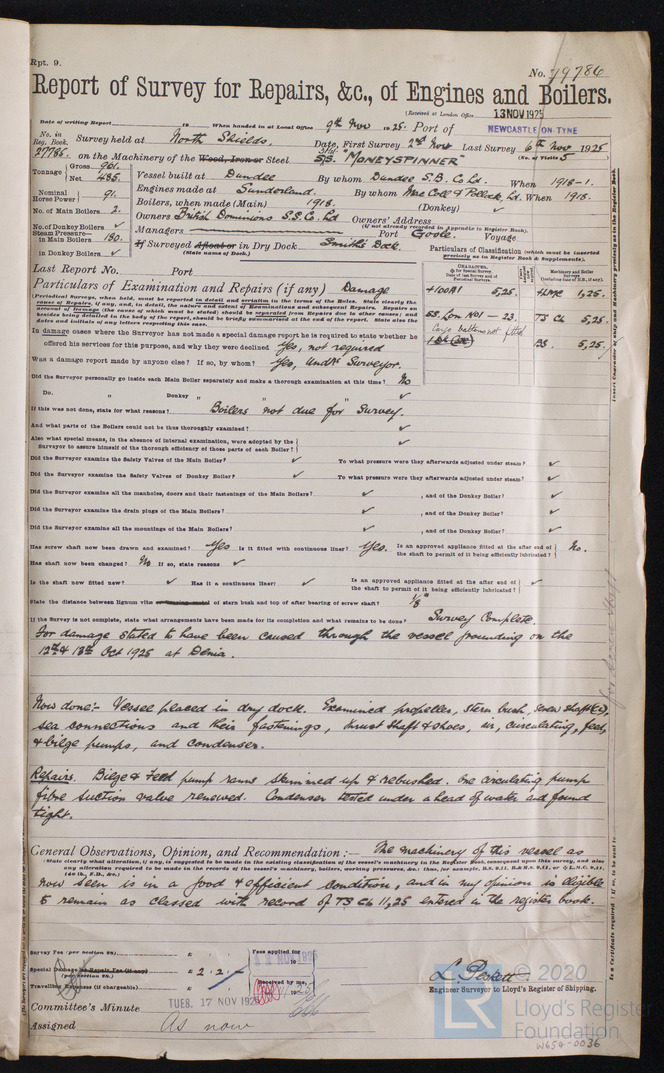 Rpt. 9.
No. 79786
Report of Survey for Repairs, &c., of Engines and Boilers.
(Received at London Office 13 NOV 1925
Date of writing Report 19 When handed in at Local Office 9th Nov 1925. Port of NEWCASTLE-ON-TYNE
No. in Reg. Book. Survey held at North Shields. Date, First Survey 2nd Nov Last Survey 6th Nov 1925
27786. on the Machinery of the Wood, Iron or Steel S/S. "MONEYSPINNER" (No. of Visits 5)
Tonnage Gross 901. Net 485.
Vessel built at Dundee By whom Dundee S.B. Co Ld. When 1918-1.
Nominal Horse Power 91.
Engines made at Sunderland. By whom Mac Coll & Pollock, Ld. When 1918.
No. of Main Boilers 2.
Boilers, when made (Main) 1918. (Donkey) ✓
Owners British Dominions S.S. Co. Ld Owners' Address
(if not already recorded in Appendix to Register Book).
No. of Donkey Boilers ✓
Managers Port Goole. Voyage
Steam Pressure— in Main Boilers 180.
in Donkey Boilers ✓
If Surveyed Afloat or in Dry Dock Smith's Dock.
(State name of Dock.)
Particulars of Classification (which must be inserted precisely as in Register Book & Supplements).
Last Report No. Port
CHARACTER,
Machinery and Boiler Surveys
Particulars of Examination and Repairs (if any) Damage
+100A1 5,25. +LMC 1,25.
SS. Lon No1 - 23. TS CL 5,25.
Cargo battens not fitted
BS. 5,25.
(Periodical Surveys, when held, must be reported in detail and seriatim in the terms of the Rules. State clearly the cause of Repairs, if any, and, in detail, the nature and extent of Examinations and subsequent Repairs. Repairs on account of Damage (the cause of which must be stated) should be separated from Repairs due to other causes; and besides being detailed in the body of the report, should be briefly summarised at the end of the report. State also the dates and initials of any letters respecting this case.
In damage cases where the Surveyor has not made a special damage report he is required to state whether he
offered his services for this purpose, and why they were declined Yes, not required
Was a damage report made by anyone else? If so, by whom? Yes, Undrs Surveyor.
Did the Surveyor personally go inside each Main Boiler separately and make a thorough examination at this time? No
Do. " Donkey " " " ✓
If this was not done, state for what reasons? Boilers not due for survey.
And what parts of the Boilers could not be thus thoroughly examined? ✓
Also what special means, in the absence of internal examination, were adopted by the
Surveyor to assure himself of the thorough efficiency of those parts of each Boiler? ✓
Did the Surveyor examine the Safety Valves of the Main Boiler? ✓ To what pressure were they afterwards adjusted under steam? ✓
Did the Surveyor examine the Safety Valves of Donkey Boiler? ✓ To what pressure were they afterwards adjusted under steam? ✓
Did the Surveyor examine all the manholes, doors and their fastenings of the Main Boilers? ✓ , and of the Donkey Boiler? ✓
Did the Surveyor examine the drain plugs of the Main Boilers? ✓ , and of the Donkey Boiler? ✓
Did the Surveyor examine all the mountings of the Main Boilers? ✓ , and of the Donkey Boiler? ✓
Has screw shaft now been drawn and examined? Yes Is it fitted with continuous liner? Yes. Is an approved appliance fitted at the after end of the shaft to permit of it being efficiently lubricated? No.
Has shaft now been changed? No If so, state reasons ✓
Is the shaft now fitted new? ✓ Has it a continuous liner? ✓ Is an approved appliance fitted at the after end of the shaft to permit of it being efficiently lubricated? ✓
State the distance between lignum vitæ of stern bush and top of after bearing of screw shaft? 1/8"
If the Survey is not complete, state what arrangements have been made for its completion and what remains to be done? Survey Complete.
For damage stated to have been caused through the vessel grounding on the
12th & 13th Oct 1925 at Denia.
Now done:- Vessel placed in dry dock. Examined propeller, stern bush, screw shaft(s),
sea connections and their fastenings, thrust shaft & shoes, air, circulating, feed,
& bilge pumps, and condenser.
Repairs. Bilge & Feed pump rams skimmed up & rebushed. One circulating pump
fibre suction valve renewed. Condenser tested under a head of water and found
tight.
General Observations, Opinion, and Recommendation:— The machinery of this vessel as
(State clearly what alteration, if any, is suggested to be made in the existing classification of the vessel's machinery in the Register Book, consequent upon this survey, and also
any alteration required to be made in the records of the vessel's machinery, boilers, working pressures, &c.: thus, for example, B.S. 9,11, B.&M.S. 9,11, or + L.M.C. 9,11,
140 lb., F.D., &c.)
now seen is in a good & efficient condition, and in my opinion is eligible
to remain as classed with record of TS CL 11,25 entered in the register book.
Survey Fee (per section 28) £
Fees applied for
Special Damage or Repair Fee (if any) (per section 28.) £ 2 . 2 . -
Travelling Expenses (if chargeable) £
Received by me,
L. Peskett
Engineer Surveyor to Lloyd's Register of Shipping.
Committee's Minute TUES. 17 NOV 1925
Assigned As now
© 2020
LR
Lloyd's Register
Foundation
W654-0036